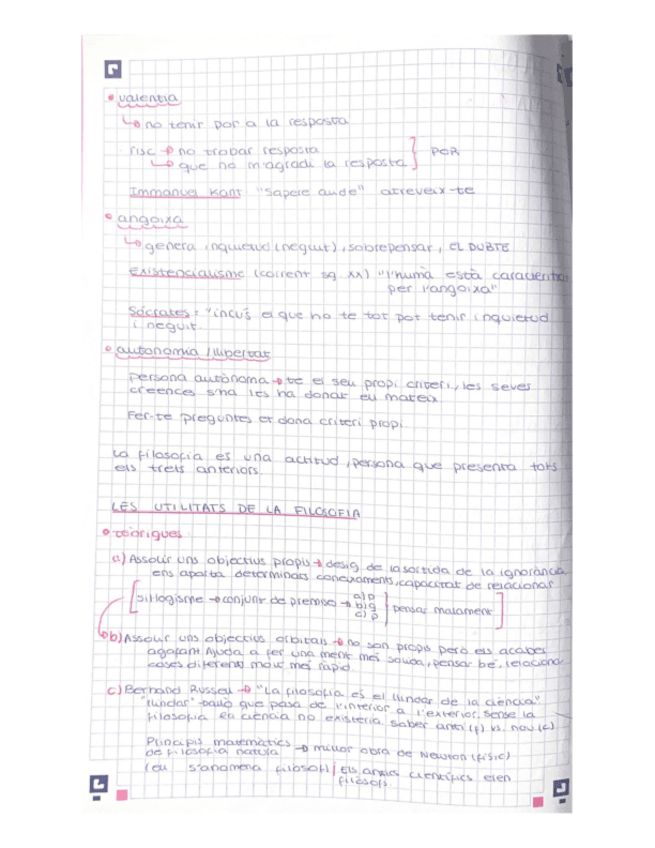 • valentia
↳ no tenir por a la resposta
risc → no trobar resposta
↳ que no m'agradi la resposta } POR
Immanuel Kant "Sapere aude" atreveix-te
• angoixa
↳ genera inquietud (neguit), sobrepensar, EL DUBTE
existencialisme (corrent sg. XX) "l'humà està caracteritza
per l'angoixa"
Sócrates: "inclús el que ho te tot pot tenir inquietud
i neguit.
• autonomia / llibertat
persona autònoma → te el seu propi criteri, les seves
creences s'ha les ha donat eu mateix.
Fer-te preguntes et dona criteri propi.
La filosofia es una actitud, persona que presenta tots
els trets anteriors.
LES UTILITATS DE LA FILOSOFIA
• teòrigues
a) Assolir uns objectius propis → desig de la sortida de la ignorància
ens aporta determinats coneixaments, capacitat de relacionar
[sil·logisme → conjunt de premise → a) p b) q c) p } pensar malament]
b) Assolir uns objectius orbitals → no son propis però els acabes
agafant. Ajuda a fer una ment més sòlida, pensar bé, relacionar
coses diferents molt més ràpid.
c) Bertrand Russell → "La filosofia es el llindar de la ciència"
"llindar" → allò que pasa de l'interior a l'exterior. Sense la
filosofia la ciència no existeria. Saber antic (f) vs. nou (c)
Principis matemàtics
de filosofia natural → millor obra de Newton (físic)
(eu s'anomena filòsof) | Els antics científics eren
filòsofs.